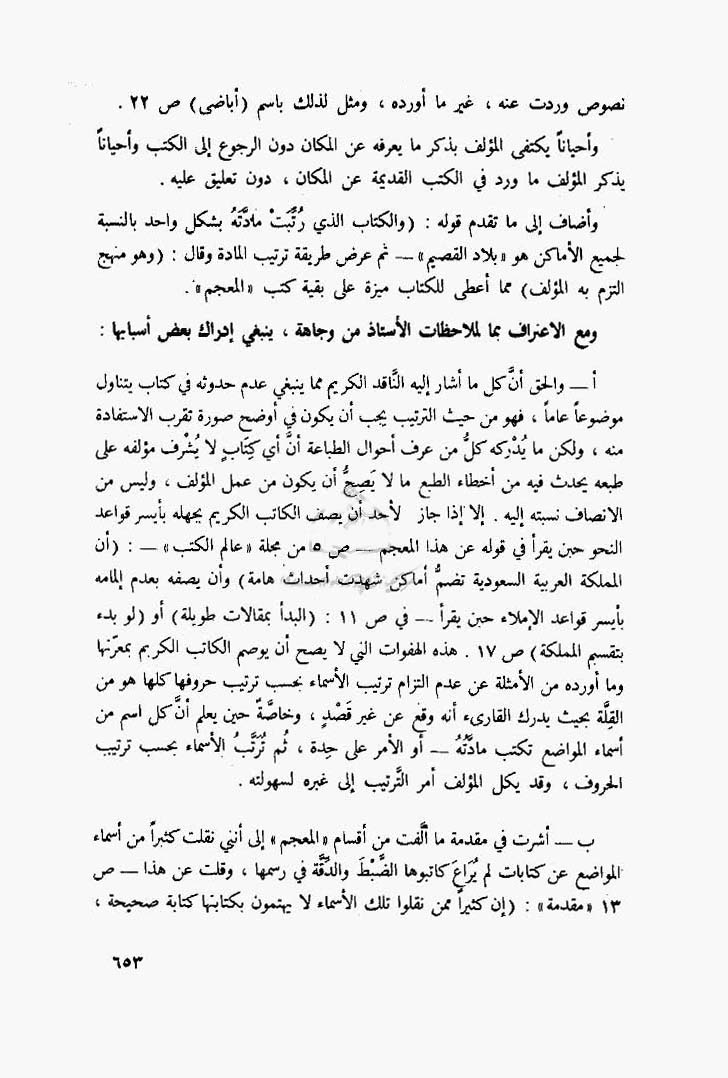 نصوص وردت عنه ، غير ما أورده ، ومثل لذلك باسم (أباضى) ص ٢٢ .
وأحياناً يكتفى المؤلف بذكر ما يعرفه عن المكان دون الرجوع إلى الكتب وأحياناً
يذكر المؤلف ما ورد في الكتب القديمة عن المكان ، دون تعليق عليه .
وأضاف إلى ما تقدم قوله : (والكتاب الذي رُتِّبَتْ مادَّتَهُ بشكل واحد بالنسبة
لجميع الأماكن هو «بلاد القصيم» — ثم عرض طريقة ترتيب المادة وقال : (وهو منهج
التزم به المؤلف) مما أعطى للكتاب ميزة على بقية كتب «المعجم» .
ومع الاعتراف بما لملاحظات الأستاذ من وجاهة ، ينبغي إدراك بعض أسبابها :
أ — والحق أنَّ كل ما أشار إليه النَّاقد الكريم مما ينبغي عدم حدوثه في كتاب يتناول
موضوعاً عاماً ، فهو من حيث الترتيب يجب أن يكون في أوضح صورة تقرب الاستفادة
منه ، ولكن ما يُدْركه كلُّ من عرف أحوال الطباعة أنَّ أي كِتَابٍ لا يُشْرف مؤلفه على
طبعه يحدث فيه من أخطاء الطبع ما لا يَصِحُّ أن يكون من عمل المؤلف ، وليس من
الانصاف نسبته إليه . إلا إذا جاز لأحد أن يصف الكاتب الكريم بجهله بأيسر قواعد
النحو حين يقرأ في قوله عن هذا المعجم — ص ٥ من مجلة «عالم الكتب» — : (أن
المملكة العربية السعودية تضمُّ أماكِن شهدت أحداث هامة) وأن يصفه بعدم إلمامه
بأيسر قواعد الإملاء حين يقرأ — في ص ١١ : (البدأ بمقالات طويلة) أو (لو بدء
بتقسيم المملكة) ص ١٧ . هذه الهفوات التي لا يصح أن يوصم الكاتب الكريم بمعرّتها
وما أورده من الأمثلة عن عدم التزام ترتيب الأسماء بحسب ترتيب حروفها كلها هو من
القِلَّة بحيث يدرك القارىء أنه وقع عن غير قَصْدٍ ، وخاصَّةً حين يعلم أنَّ كل اسم من
أسماء المواضع تكتب مادَّتُهُ — أو الأمر على حِدة ، ثُم تُرَتَّبُ الأسماء بحسب ترتيب
الحروف ، وقد يكل المؤلف أمر التَّرتيب إلى غيره لسهولته .
ب — أشرت في مقدمة ما ألَّفت من أقسام «المعجم» إلى أنني نقلت كثيراً من أسماء
المواضع عن كتابات لم يُرَاعَ كاتبوها الضَّبْطَ والدِّقَّة في رسمها ، وقلت عن هذا — ص
١٣ «مقدمة» : (إن كثيراً ممن نقلوا تلك الأسماء لا يهتمون بكتابتها كتابة صحيحة ،
٦٥٣